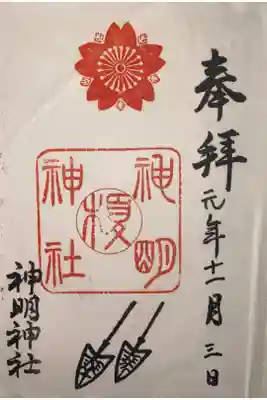 奉拝
元年十一月三日
神明
榎
神社
神明神社